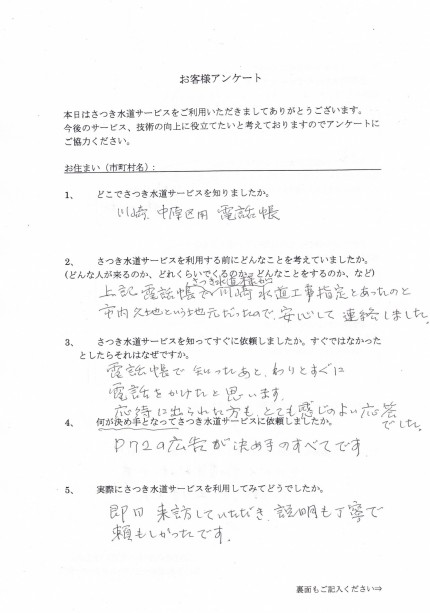 お客様アンケート
本日はさつき水道サービスをご利用いただきましてありがとうございます。
今後のサービス、技術の向上に役立てたいと考えておりますのでアンケートに
ご協力ください。
お住まい（市町村名）：
1、 どこでさつき水道サービスを知りましたか。
川崎、中原区用 電話帳
2、 さつき水道サービスを利用する前にどんなことを考えていましたか。
(どんな人が来るのか、どれくらいでくるのか、どんなことをするのか、など)
さつき水道様が
上記 電話帳で 川崎 水道工事指定とあったのと
市内久地という地元だったので、安心して 連絡しました。
3、 さつき水道サービスを知ってすぐに依頼しましたか。すぐではなかった
としたらそれはなぜですか。
電話帳で 知ったあと、わりとすぐに
電話をかけたと思います。
応待に出られた方も、とても感じのよい応答
でした。
4、 何が決め手となってさつき水道サービスに依頼しましたか。
P72の広告が決め手のすべてです
5、 実際にさつき水道サービスを利用してみてどうでしたか。
即日 来訪していただき、説明も丁寧で
頼もしかったです。
裏面もご記入ください⇒